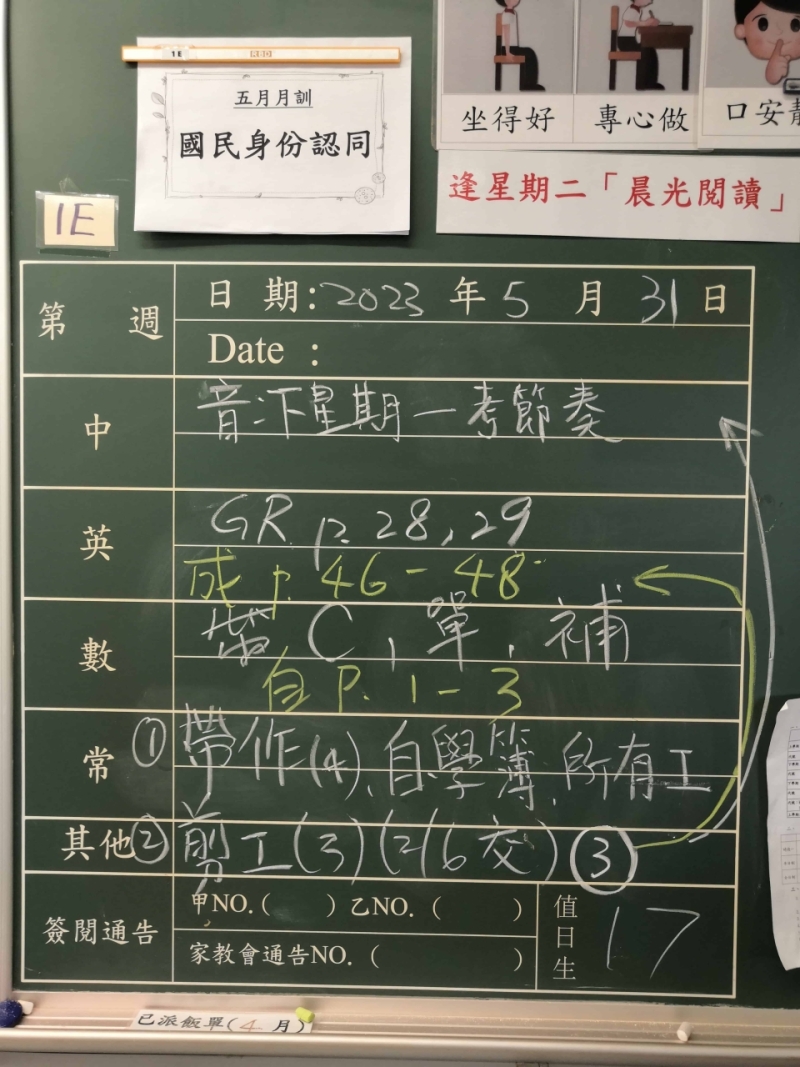 1E
RBD
五月月訓
國民身份認同
坐得好
專心做
口安靜
逢星期二「晨光閱讀」
1E
第 週
日 期:2023 年 5 月 31 日
Date :
中
音:下星期一考節奏
英
GR p. 28, 29
成 p. 46 - 48
數
帶 C, 單, 補
自 P. 1 - 3
常
① 帶作(4), 自學簿, 所有工
其他
② 剪工(3)(2/6交) ③
簽閱通告
甲NO.( ) 乙NO. ( )
家教會通告NO. ( )
值日生
17
已派飯單(4 月)